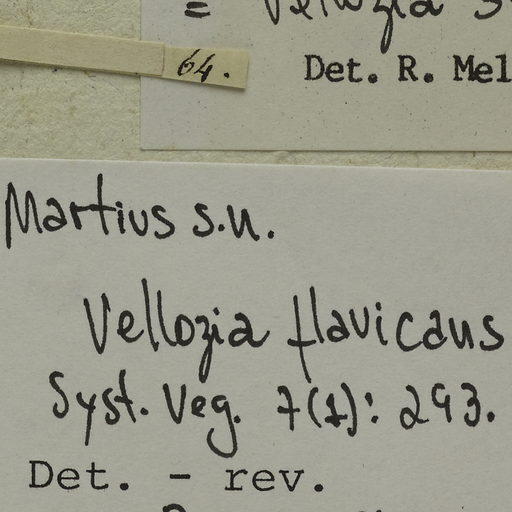 = Vellozia
64.
Det. R. Mel
Martius s.n.
Vellozia flavicans
Syst. Veg. 7(1): 293.
Det. - rev.